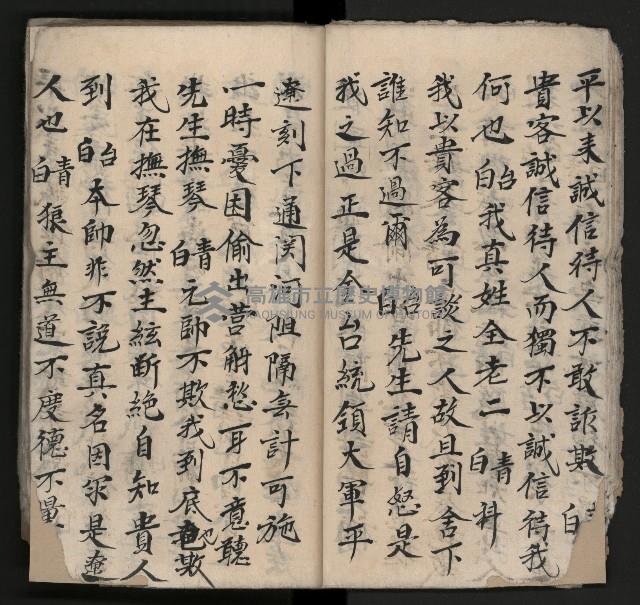 平以来誠信待人不敢詐欺 白
貴客誠信待人而獨不以誠信待我
何也 台白 我真姓全老二 青白 料
我以貴客為可談之人故且到舍下
誰知不過爾 台白 先生請自怒是
我之過正是今台統領大軍平
遼刻下通関 阻隔無計可施
一時憂困偷出营觧愁耳不意聽
先生撫琴 青白 元帥不欺我到底也欺
我在撫琴忽然主絃断絶自知貴人
到 台白 本帥非不說真名因你是遼
人也 青白 狼主無道不度德不量
高雄市立歷史博物館
KAOHSIUNG MUSEUM OF HISTORY